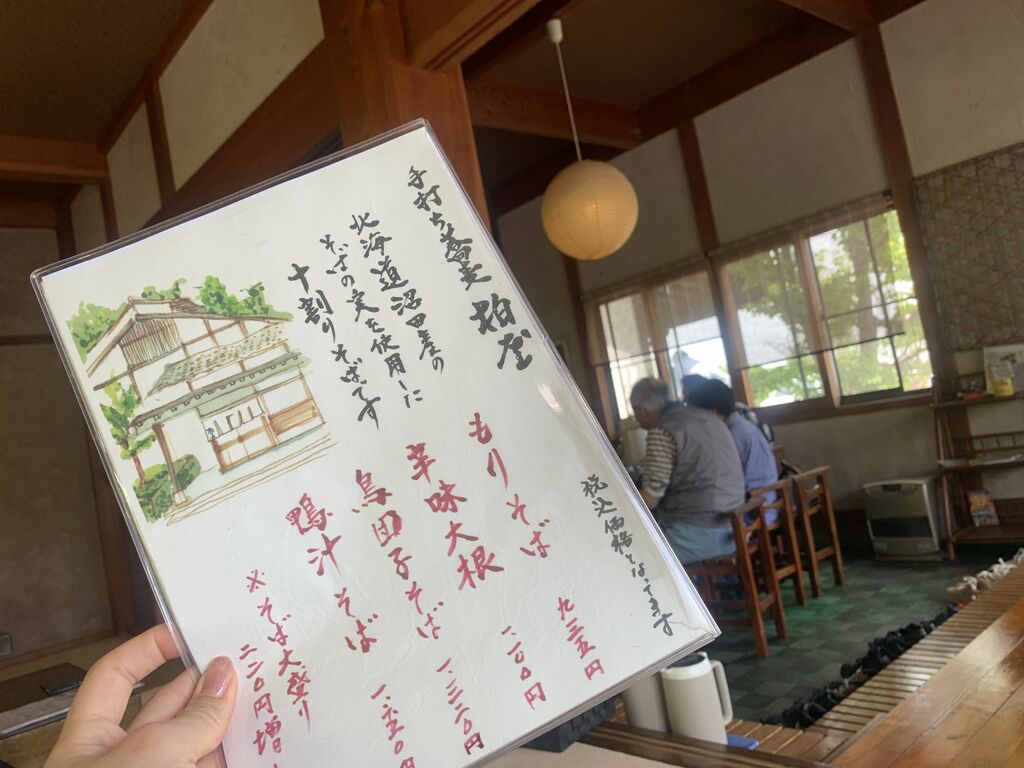 手打ち蕎麦 柏屋
北海道沼田産の
そばの実を使用した
十割りそばです
税込価格となってます
もりそば 九三五円
辛味大根 一、一〇〇円
鳥団子そば 一、三二〇円
鴨汁そば 一、六五〇円
※そば大盛り 二二〇円増